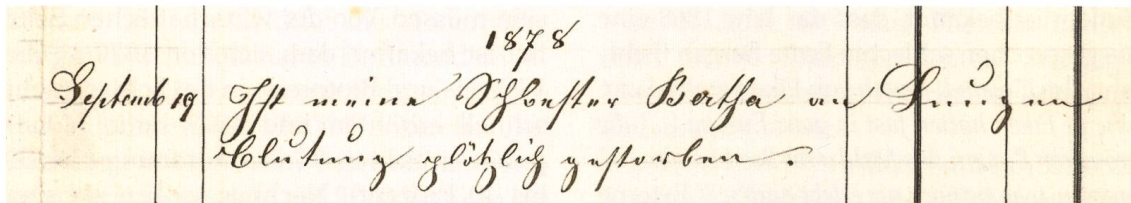 1878
Septemb 19 Ist meine Schwester Bertha an Lungen
blutung plötzlich gestorben.